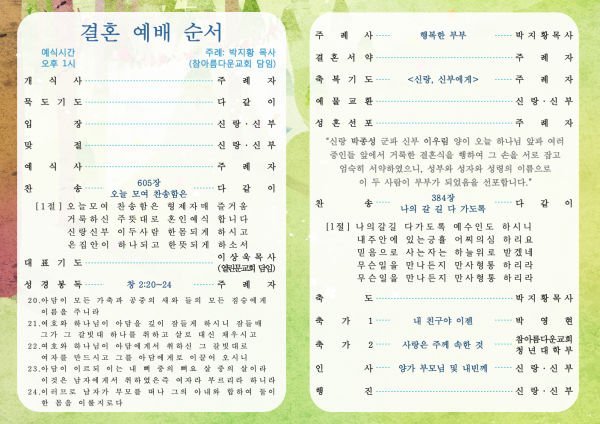 결혼 예배 순서
예식시간 주례: 박지황 목사
오후 1시 (참아름다운교회 담임)
개식사 주례자
묵도기도 다같이
입장 신랑·신부
맞절 신랑·신부
예식사 주례자
찬송 605장 다같이
오늘 모여 찬송함은
[1절] 오늘모여 찬송함은 형제자매 즐거움
거룩하신 주뜻대로 혼인예식 합니다
신랑신부 이두사람 한몸되게 하시고
온집안이 하나되고 한뜻되게 하소서
대표기도 이상욱목사
(열린문교회 담임)
성경봉독 창 2:20~24 주례자
20.아담이 모든 가축과 공중의 새와 들의 모든 짐승에게
이름을 주니라
21.여호와 하나님이 아담을 깊이 잠들게 하시니 잠들매
그가 그 갈빗대 하나를 취하고 살로 대신 채우시고
22.여호와 하나님이 아담에게서 취하신 그 갈빗대로
여자를 만드시고 그를 아담에게로 이끌어 오시니
23.아담이 이르되 이는 내 뼈 중의 뼈요 살 중의 살이라
이것은 남자에게서 취하였은즉 여자라 부르리라 하니라
24.이러므로 남자가 부모를 떠나 그의 아내와 합하여 둘이
한 몸을 이룰지로다
주례사 행복한 부부 박지황목사
결혼서약 주례자
축복기도 <신랑, 신부에게> 주례자
예물교환 신랑·신부
성혼선포 주례자
“신랑 박종성 군과 신부 이우림 양이 오늘 하나님 앞과 여러
증인들 앞에서 거룩한 결혼식을 행하여 그 손을 서로 잡고
엄숙히 서약하였으니, 성부와 성자와 성령의 이름으로
이 두 사람이 부부가 되었음을 선포합니다.”
찬송 384장 다같이
나의 갈 길 다 가도록
[1절] 나의갈길 다가도록 예수인도 하시니
내주안에 있는긍휼 어찌의심 하리요
믿음으로 사는자는 하늘위로 받겠네
무슨일을 만나든지 만사형통 하리라
무슨일을 만나든지 만사형통 하리라
축도 박지황목사
축가1 내 친구야 이젠 박영현
축가2 사랑은 주께 속한 것 참아름다운교회
청년대학부
인사 양가 부모님 및 내빈께 신랑·신부
행진 신랑·신부